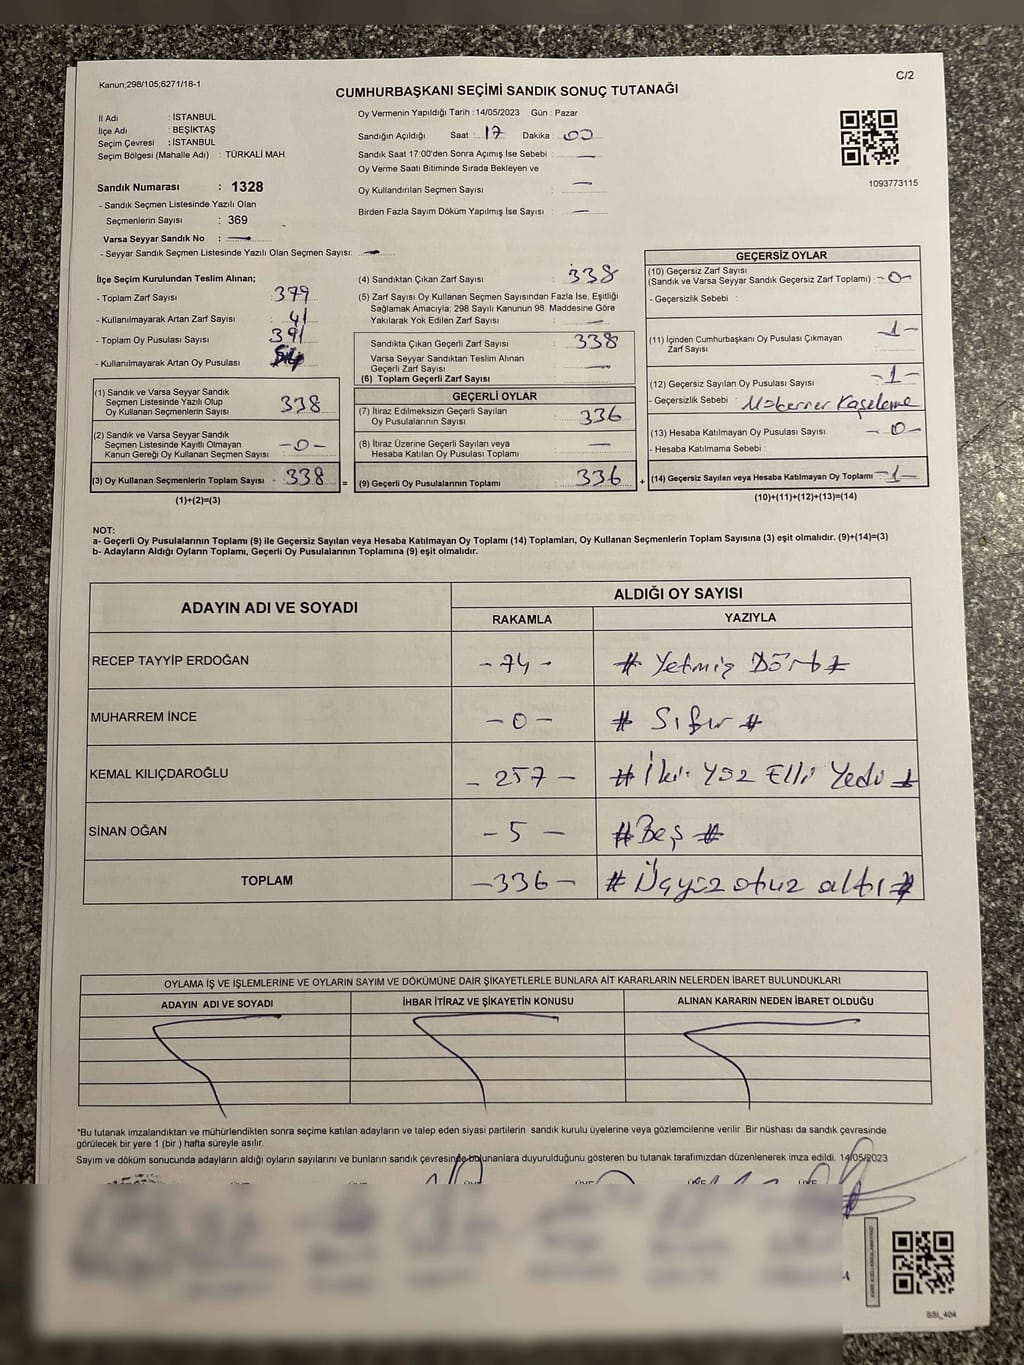 Kanun;298/105;6271/18-1
C/2
CUMHURBAŞKANI SEÇİMİ SANDIK SONUÇ TUTANAĞI
İl Adı : İSTANBUL
İlçe Adı : BEŞİKTAŞ
Seçim Çevresi : İSTANBUL
Seçim Bölgesi (Mahalle Adı) : TÜRKALİ MAH.
Oy Vermenin Yapıldığı Tarih : 14/05/2023 Gün : Pazar
Sandığın Açıldığı Saat : 17 Dakika : 00
Sandık Saat 17:00'den Sonra Açımış İse Sebebi : —
Oy Verme Saati Bitiminde Sırada Bekleyen ve
Oy Kullandırılan Seçmen Sayısı : —
Birden Fazla Sayım Döküm Yapılmış İse Sayısı : —
1093773115
Sandık Numarası : 1328
- Sandık Seçmen Listesinde Yazılı Olan
Seçmenlerin Sayısı : 369
Varsa Seyyar Sandık No : —
- Seyyar Sandık Seçmen Listesinde Yazılı Olan Seçmen Sayısı: —
İlçe Seçim Kurulundan Teslim Alınan;
- Toplam Zarf Sayısı 379
- Kullanılmayarak Artan Zarf Sayısı 41
- Toplam Oy Pusulası Sayısı 391
- Kullanılmayarak Artan Oy Pusulası
(1) Sandık ve Varsa Seyyar Sandık
Seçmen Listesinde Yazılı Olup
Oy Kullanan Seçmenlerin Sayısı 338
(2) Sandık ve Varsa Seyyar Sandık
Seçmen Listesinde Kayıtlı Olmayan
Kanun Gereği Oy Kullanan Seçmen Sayısı : -0-
(3) Oy Kullanan Seçmenlerin Toplam Sayısı - 338 =
(1)+(2)=(3)
(4) Sandıktan Çıkan Zarf Sayısı : 338
(5) Zarf Sayısı Oy Kullanan Seçmen Sayısından Fazla İse, Eşitliği
Sağlamak Amacıyla; 298 Sayılı Kanunun 98. Maddesine Göre
Yakılarak Yok Edilen Zarf Sayısı : —
Sandıkta Çıkan Geçerli Zarf Sayısı : 338
Varsa Seyyar Sandıktan Teslim Alınan
Geçerli Zarf Sayısı : —
(6) Toplam Geçerli Zarf Sayısı
GEÇERLİ OYLAR
(7) İtiraz Edilmeksizin Geçerli Sayılan
Oy Pusulalarının Sayısı : 336
(8) İtiraz Üzerine Geçerli Sayılan veya
Hesaba Katılan Oy Pusulası Toplamı : —
(9) Geçerli Oy Pusulalarının Toplamı : 336 +
GEÇERSİZ OYLAR
(10) Geçersiz Zarf Sayısı
(Sandık ve Varsa Seyyar Sandık Geçersiz Zarf Toplamı) : -0-
- Geçersizlik Sebebi :
(11) İçinden Cumhurbaşkanı Oy Pusulası Çıkmayan
Zarf Sayısı : -1-
(12) Geçersiz Sayılan Oy Pusulası Sayısı : -1-
- Geçersizlik Sebebi : Müberrer Kaşeleme
(13) Hesaba Katılmayan Oy Pusulası Sayısı : -0-
- Hesaba Katılmama Sebebi :
(14) Geçersiz Sayılan veya Hesaba Katılmayan Oy Toplamı : -1-
(10)+(11)+(12)+(13)=(14)
NOT:
a- Geçerli Oy Pusulalarının Toplamı (9) ile Geçersiz Sayılan veya Hesaba Katılmayan Oy Toplamı (14) Toplamları, Oy Kullanan Seçmenlerin Toplam Sayısına (3) eşit olmalıdır. (9)+(14)=(3)
b- Adayların Aldığı Oyların Toplamı, Geçerli Oy Pusulalarının Toplamına (9) eşit olmalıdır.
ADAYIN ADI VE SOYADI
ALDIĞI OY SAYISI
RAKAMLA YAZIYLA
RECEP TAYYİP ERDOĞAN -74- # Yetmiş Dört #
MUHARREM İNCE -0- # Sıfır #
KEMAL KILIÇDAROĞLU -257- # İki Yüz Elli Yedi #
SİNAN OĞAN -5- # Beş #
TOPLAM -336- # Üçyüz otuz altı #
OYLAMA İŞ VE İŞLEMLERİNE VE OYLARIN SAYIM VE DÖKÜMÜNE DAİR ŞİKAYETLERLE BUNLARA AİT KARARLARIN NELERDEN İBARET BULUNDUKLARI
ADAYIN ADI VE SOYADI İHBAR İTİRAZ VE ŞİKAYETİN KONUSU ALINAN KARARIN NEDEN İBARET OLDUĞU
*Bu tutanak imzalandıktan ve mühürlendikten sonra seçime katılan adayların ve talep eden siyasi partilerin sandık kurulu üyelerine veya gözlemcilerine verilir .Bir nüshası da sandık çevresinde
görülecek bir yere 1 (bir ) hafta süreyle asılır.
Sayım ve döküm sonucunda adayların aldığı oyların sayılarını ve bunların sandık çevresinde bulunanlara duyurulduğunu gösteren bu tutanak tarafımızdan düzenlenerek imza edildi. 14/05/2023
SSI_404